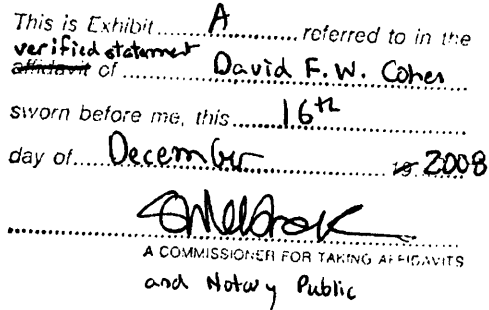 This is Exhibit.............A..............referred to in the
verified statement
affidavit of................David F.W. Cohen
sworn before me, this..........16th
day of.....December.................19 2008
A COMMISSIONER FOR TAKING AFFIDAVITS
and Notary Public